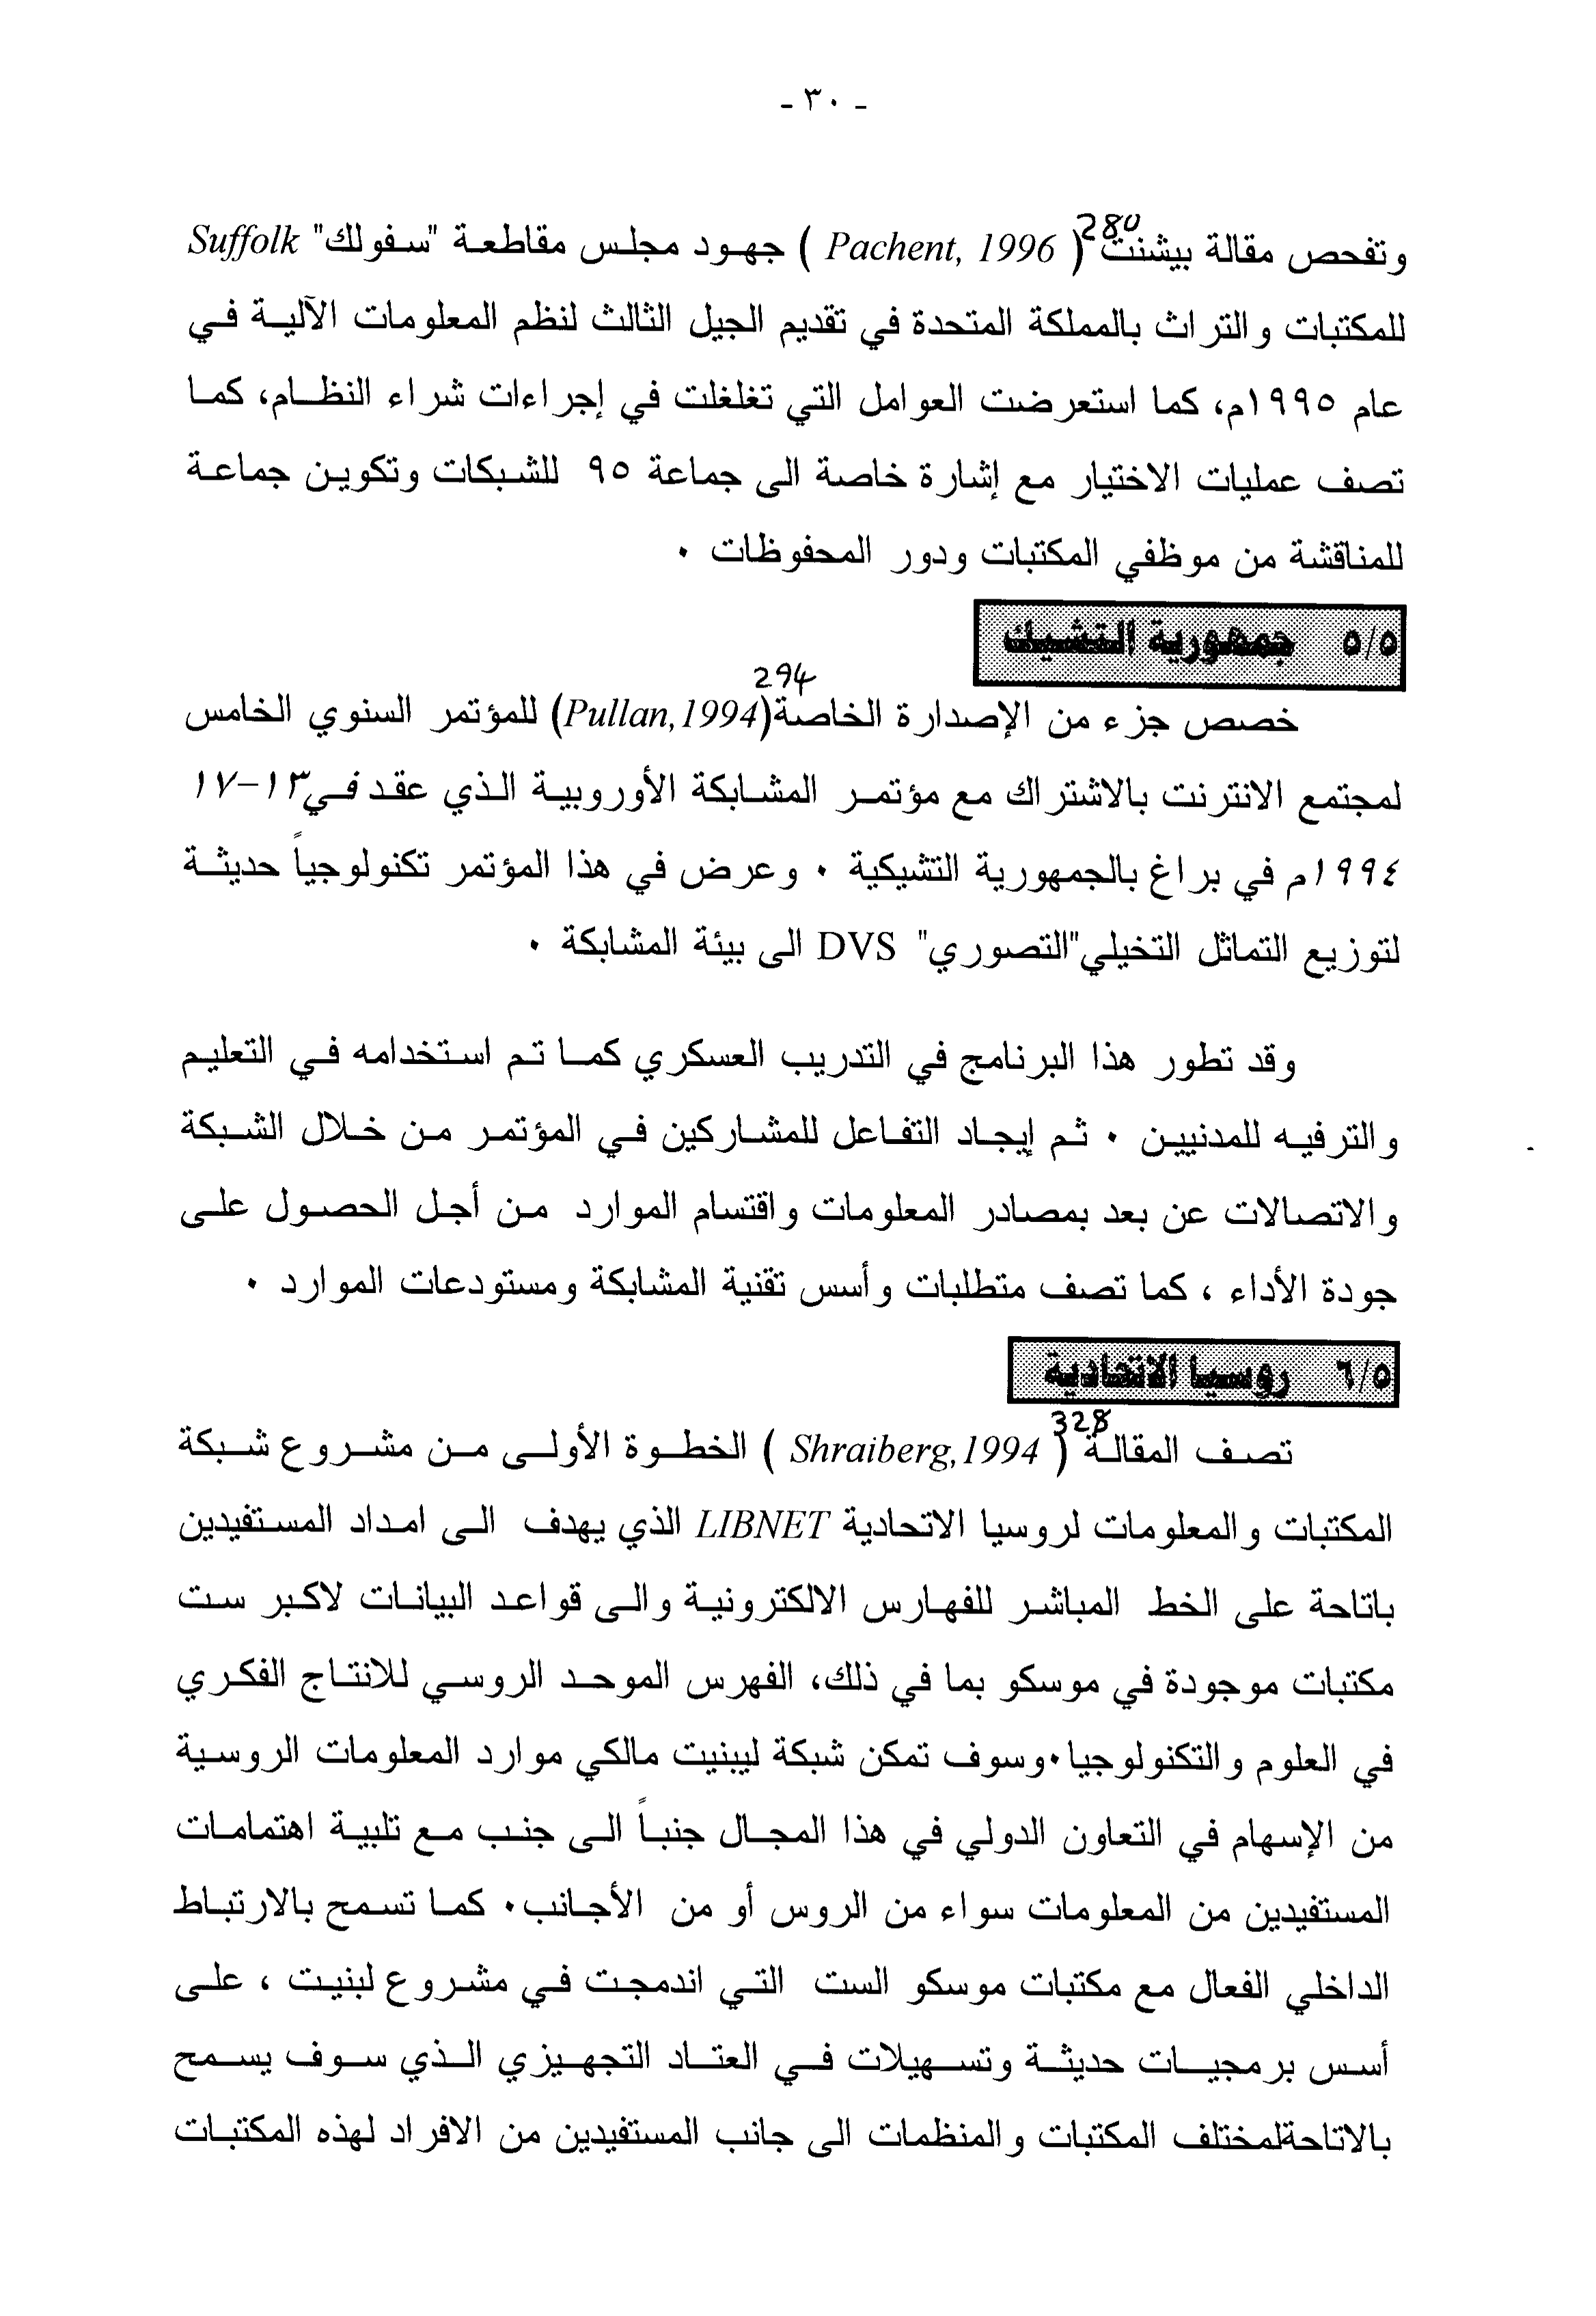 - ٣٠ -
وتفحص مقالة بيشنت 280 ( Pachent, 1996 ) جهود مجلس مقاطعة "سفولك" Suffolk
للمكتبات والتراث بالمملكة المتحدة في تقديم الجيل الثالث لنظم المعلومات الآلية في
عام ١٩٩٥م، كما استعرضت العوامل التي تغلغلت في إجراءات شراء النظام، كما
تصف عمليات الاختيار مع إشارة خاصة الى جماعة ٩٥ للشبكات وتكوين جماعة
للمناقشة من موظفي المكتبات ودور المحفوظات ٠
٥/٥ جمهورية التشيك
خصص جزء من الإصدارة الخاصة 294 (Pullan,1994) للمؤتمر السنوي الخامس
لمجتمع الانترنت بالاشتراك مع مؤتمر المشابكة الأوروبية الذي عقد في١٣-١٧
١٩٩٤م في براغ بالجمهورية التشيكية ٠ وعرض في هذا المؤتمر تكنولوجياً حديثة
لتوزيع التماثل التخيلي"التصوري" DVS الى بيئة المشابكة ٠
وقد تطور هذا البرنامج في التدريب العسكري كما تم استخدامه في التعليم
والترفيه للمدنيين ٠ ثم إيجاد التفاعل للمشاركين في المؤتمر من خلال الشبكة
والاتصالات عن بعد بمصادر المعلومات واقتسام الموارد من أجل الحصول على
جودة الأداء ، كما تصف متطلبات وأسس تقنية المشابكة ومستودعات الموارد ٠
٦/٥ روسيا الاتحادية
تصف المقالة 328 ( Shraiberg,1994 ) الخطوة الأولى من مشروع شبكة
المكتبات والمعلومات لروسيا الاتحادية LIBNET الذي يهدف الى امداد المستفيدين
باتاحة على الخط المباشر للفهارس الالكترونية والى قواعد البيانات لاكبر ست
مكتبات موجودة في موسكو بما في ذلك، الفهرس الموحد الروسي للانتاج الفكري
في العلوم والتكنولوجيا٠وسوف تمكن شبكة ليبنيت مالكي موارد المعلومات الروسية
من الإسهام في التعاون الدولي في هذا المجال جنباً الى جنب مع تلبية اهتمامات
المستفيدين من المعلومات سواء من الروس أو من الأجانب٠ كما تسمح بالارتباط
الداخلي الفعال مع مكتبات موسكو الست التي اندمجت في مشروع لبنيت ، على
أسس برمجيات حديثة وتسهيلات في العتاد التجهيزي الذي سوف يسمح
بالاتاحةلمختلف المكتبات والمنظمات الى جانب المستفيدين من الافراد لهذه المكتبات